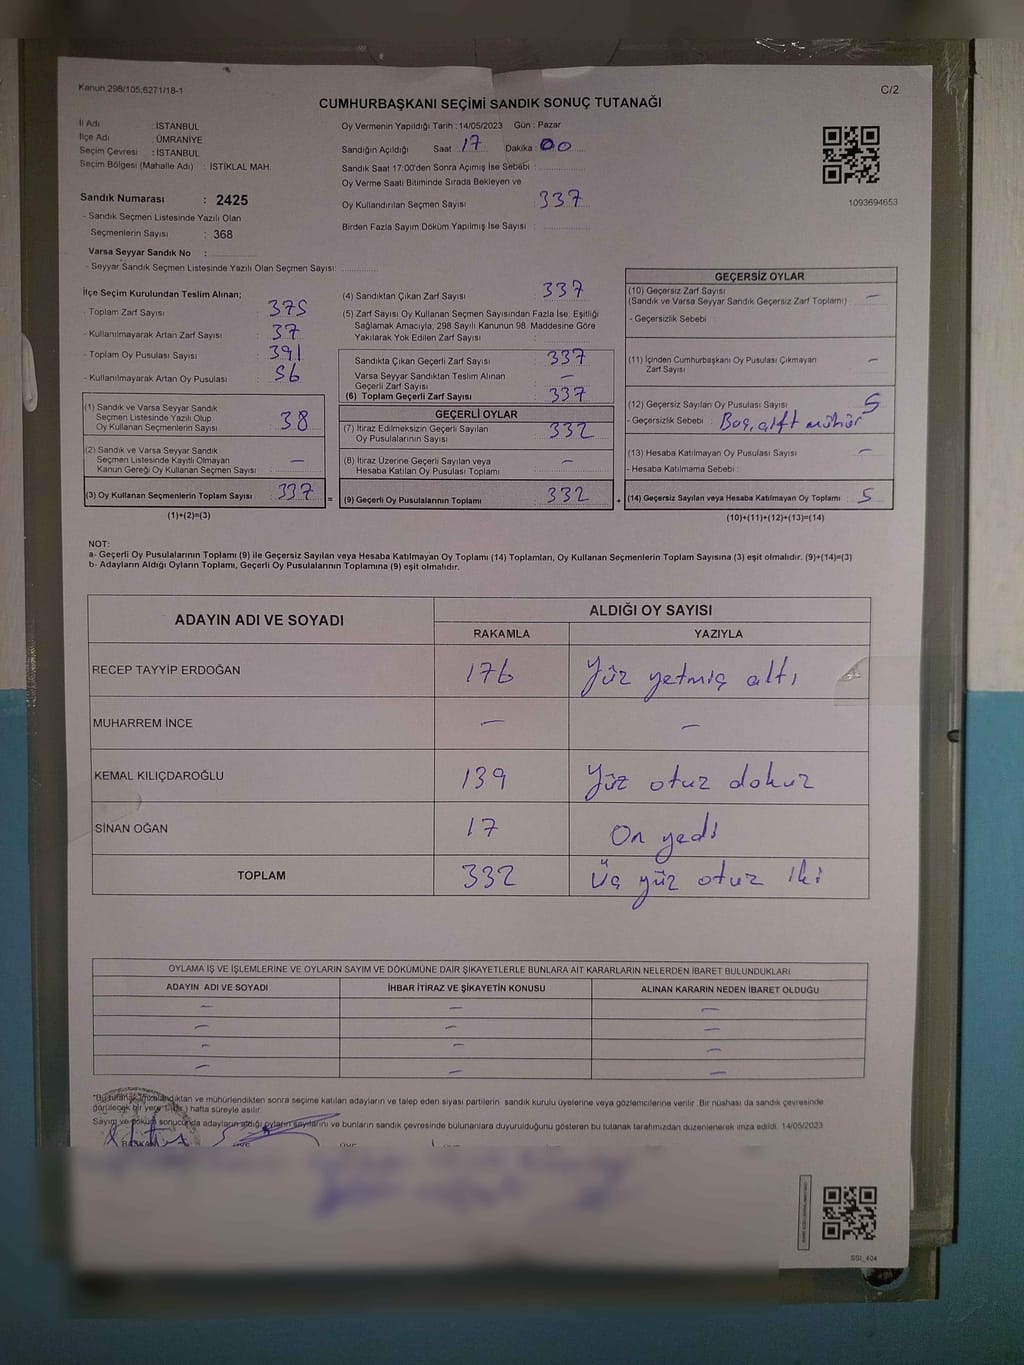 Kanun,298/105,6271/18-1
C/2
CUMHURBAŞKANI SEÇİMİ SANDIK SONUÇ TUTANAĞI
İl Adı : İSTANBUL
İlçe Adı : ÜMRANİYE
Seçim Çevresi : İSTANBUL
Seçim Bölgesi (Mahalle Adı) : İSTİKLAL MAH.
Oy Vermenin Yapıldığı Tarih : 14/05/2023 Gün : Pazar
Sandığın Açıldığı Saat 17 Dakika : 00
Sandık Saat 17:00'den Sonra Açılmış İse Sebebi :
Oy Verme Saati Bitiminde Sırada Bekleyen ve
Oy Kullandırılan Seçmen Sayısı 337
Birden Fazla Sayım Döküm Yapılmış İse Sayısı :
1093694653
Sandık Numarası : 2425
- Sandık Seçmen Listesinde Yazılı Olan
Seçmenlerin Sayısı : 368
Varsa Seyyar Sandık No :
- Seyyar Sandık Seçmen Listesinde Yazılı Olan Seçmen Sayısı:
İlçe Seçim Kurulundan Teslim Alınan;
- Toplam Zarf Sayısı : 375
- Kullanılmayarak Artan Zarf Sayısı : 37
- Toplam Oy Pusulası Sayısı : 391
- Kullanılmayarak Artan Oy Pusulası : 56
(1) Sandık ve Varsa Seyyar Sandık
Seçmen Listesinde Yazılı Olup
Oy Kullanan Seçmenlerin Sayısı : 38
(2) Sandık ve Varsa Seyyar Sandık
Seçmen Listesinde Kayıtlı Olmayan
Kanun Gereği Oy Kullanan Seçmen Sayısı : —
(3) Oy Kullanan Seçmenlerin Toplam Sayısı : 337 =
(1)+(2)=(3)
(4) Sandıktan Çıkan Zarf Sayısı : 337
(5) Zarf Sayısı Oy Kullanan Seçmen Sayısından Fazla İse, Eşitliği
Sağlamak Amacıyla, 298 Sayılı Kanunun 98. Maddesine Göre
Yakılarak Yok Edilen Zarf Sayısı :
Sandıkta Çıkan Geçerli Zarf Sayısı : 337
Varsa Seyyar Sandıktan Teslim Alınan
Geçerli Zarf Sayısı : —
(6) Toplam Geçerli Zarf Sayısı : 337
GEÇERLİ OYLAR
(7) İtiraz Edilmeksizin Geçerli Sayılan
Oy Pusulalarının Sayısı : 332
(8) İtiraz Üzerine Geçerli Sayılan veya
Hesaba Katılan Oy Pusulası Toplamı : —
(9) Geçerli Oy Pusulalarının Toplamı : 332 +
GEÇERSİZ OYLAR
(10) Geçersiz Zarf Sayısı
(Sandık ve Varsa Seyyar Sandık Geçersiz Zarf Toplamı) : —
- Geçersizlik Sebebi :
(11) İçinden Cumhurbaşkanı Oy Pusulası Çıkmayan
Zarf Sayısı : —
(12) Geçersiz Sayılan Oy Pusulası Sayısı : 5
- Geçersizlik Sebebi : Boş, çift mühür
(13) Hesaba Katılmayan Oy Pusulası Sayısı : —
- Hesaba Katılmama Sebebi :
(14) Geçersiz Sayılan veya Hesaba Katılmayan Oy Toplamı : 5
(10)+(11)+(12)+(13)=(14)
NOT:
a- Geçerli Oy Pusulalarının Toplamı (9) ile Geçersiz Sayılan veya Hesaba Katılmayan Oy Toplamı (14) Toplamları, Oy Kullanan Seçmenlerin Toplam Sayısına (3) eşit olmalıdır. (9)+(14)=(3)
b- Adayların Aldığı Oyların Toplamı, Geçerli Oy Pusulalarının Toplamına (9) eşit olmalıdır.
ADAYIN ADI VE SOYADI
ALDIĞI OY SAYISI
RAKAMLA YAZIYLA
RECEP TAYYİP ERDOĞAN 176 Yüz yetmiş altı
MUHARREM İNCE — —
KEMAL KILIÇDAROĞLU 139 Yüz otuz dokuz
SİNAN OĞAN 17 On yedi
TOPLAM 332 Üç yüz otuz iki
OYLAMA İŞ VE İŞLEMLERİNE VE OYLARIN SAYIM VE DÖKÜMÜNE DAİR ŞİKAYETLERLE BUNLARA AİT KARARLARIN NELERDEN İBARET BULUNDUKLARI
ADAYIN ADI VE SOYADI İHBAR İTİRAZ VE ŞİKAYETİN KONUSU ALINAN KARARIN NEDEN İBARET OLDUĞU
— — —
— — —
— — —
— — —
*Bu tutanak imzalandıktan ve mühürlendikten sonra seçime katılan adayların ve talep eden siyasi partilerin sandık kurulu üyelerine veya gözlemcilerine verilir. Bir nüshası da sandık çevresinde
görülecek bir yere 1 (bir) hafta süreyle asılır.
Sayım ve döküm sonucunda adayların aldığı oyların sayılarını ve bunların sandık çevresinde bulunanlara duyurulduğunu gösteren bu tutanak tarafımızdan düzenlenerek imza edildi. 14/05/2023
SSI_404